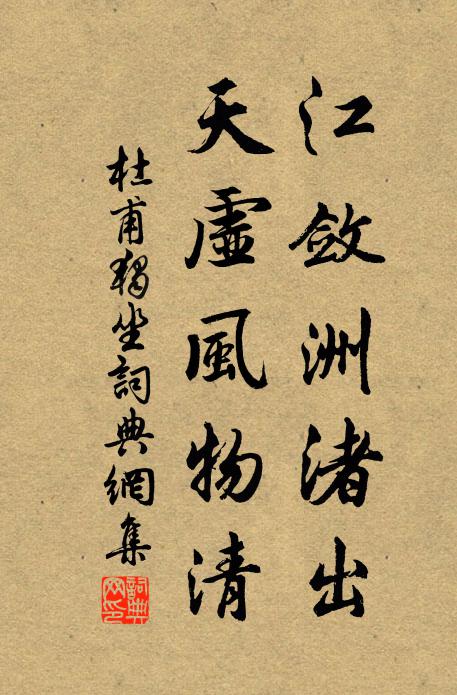 江斂洲渚出
天虛風物清
杜甫獨坐詞典網集
詞典網印